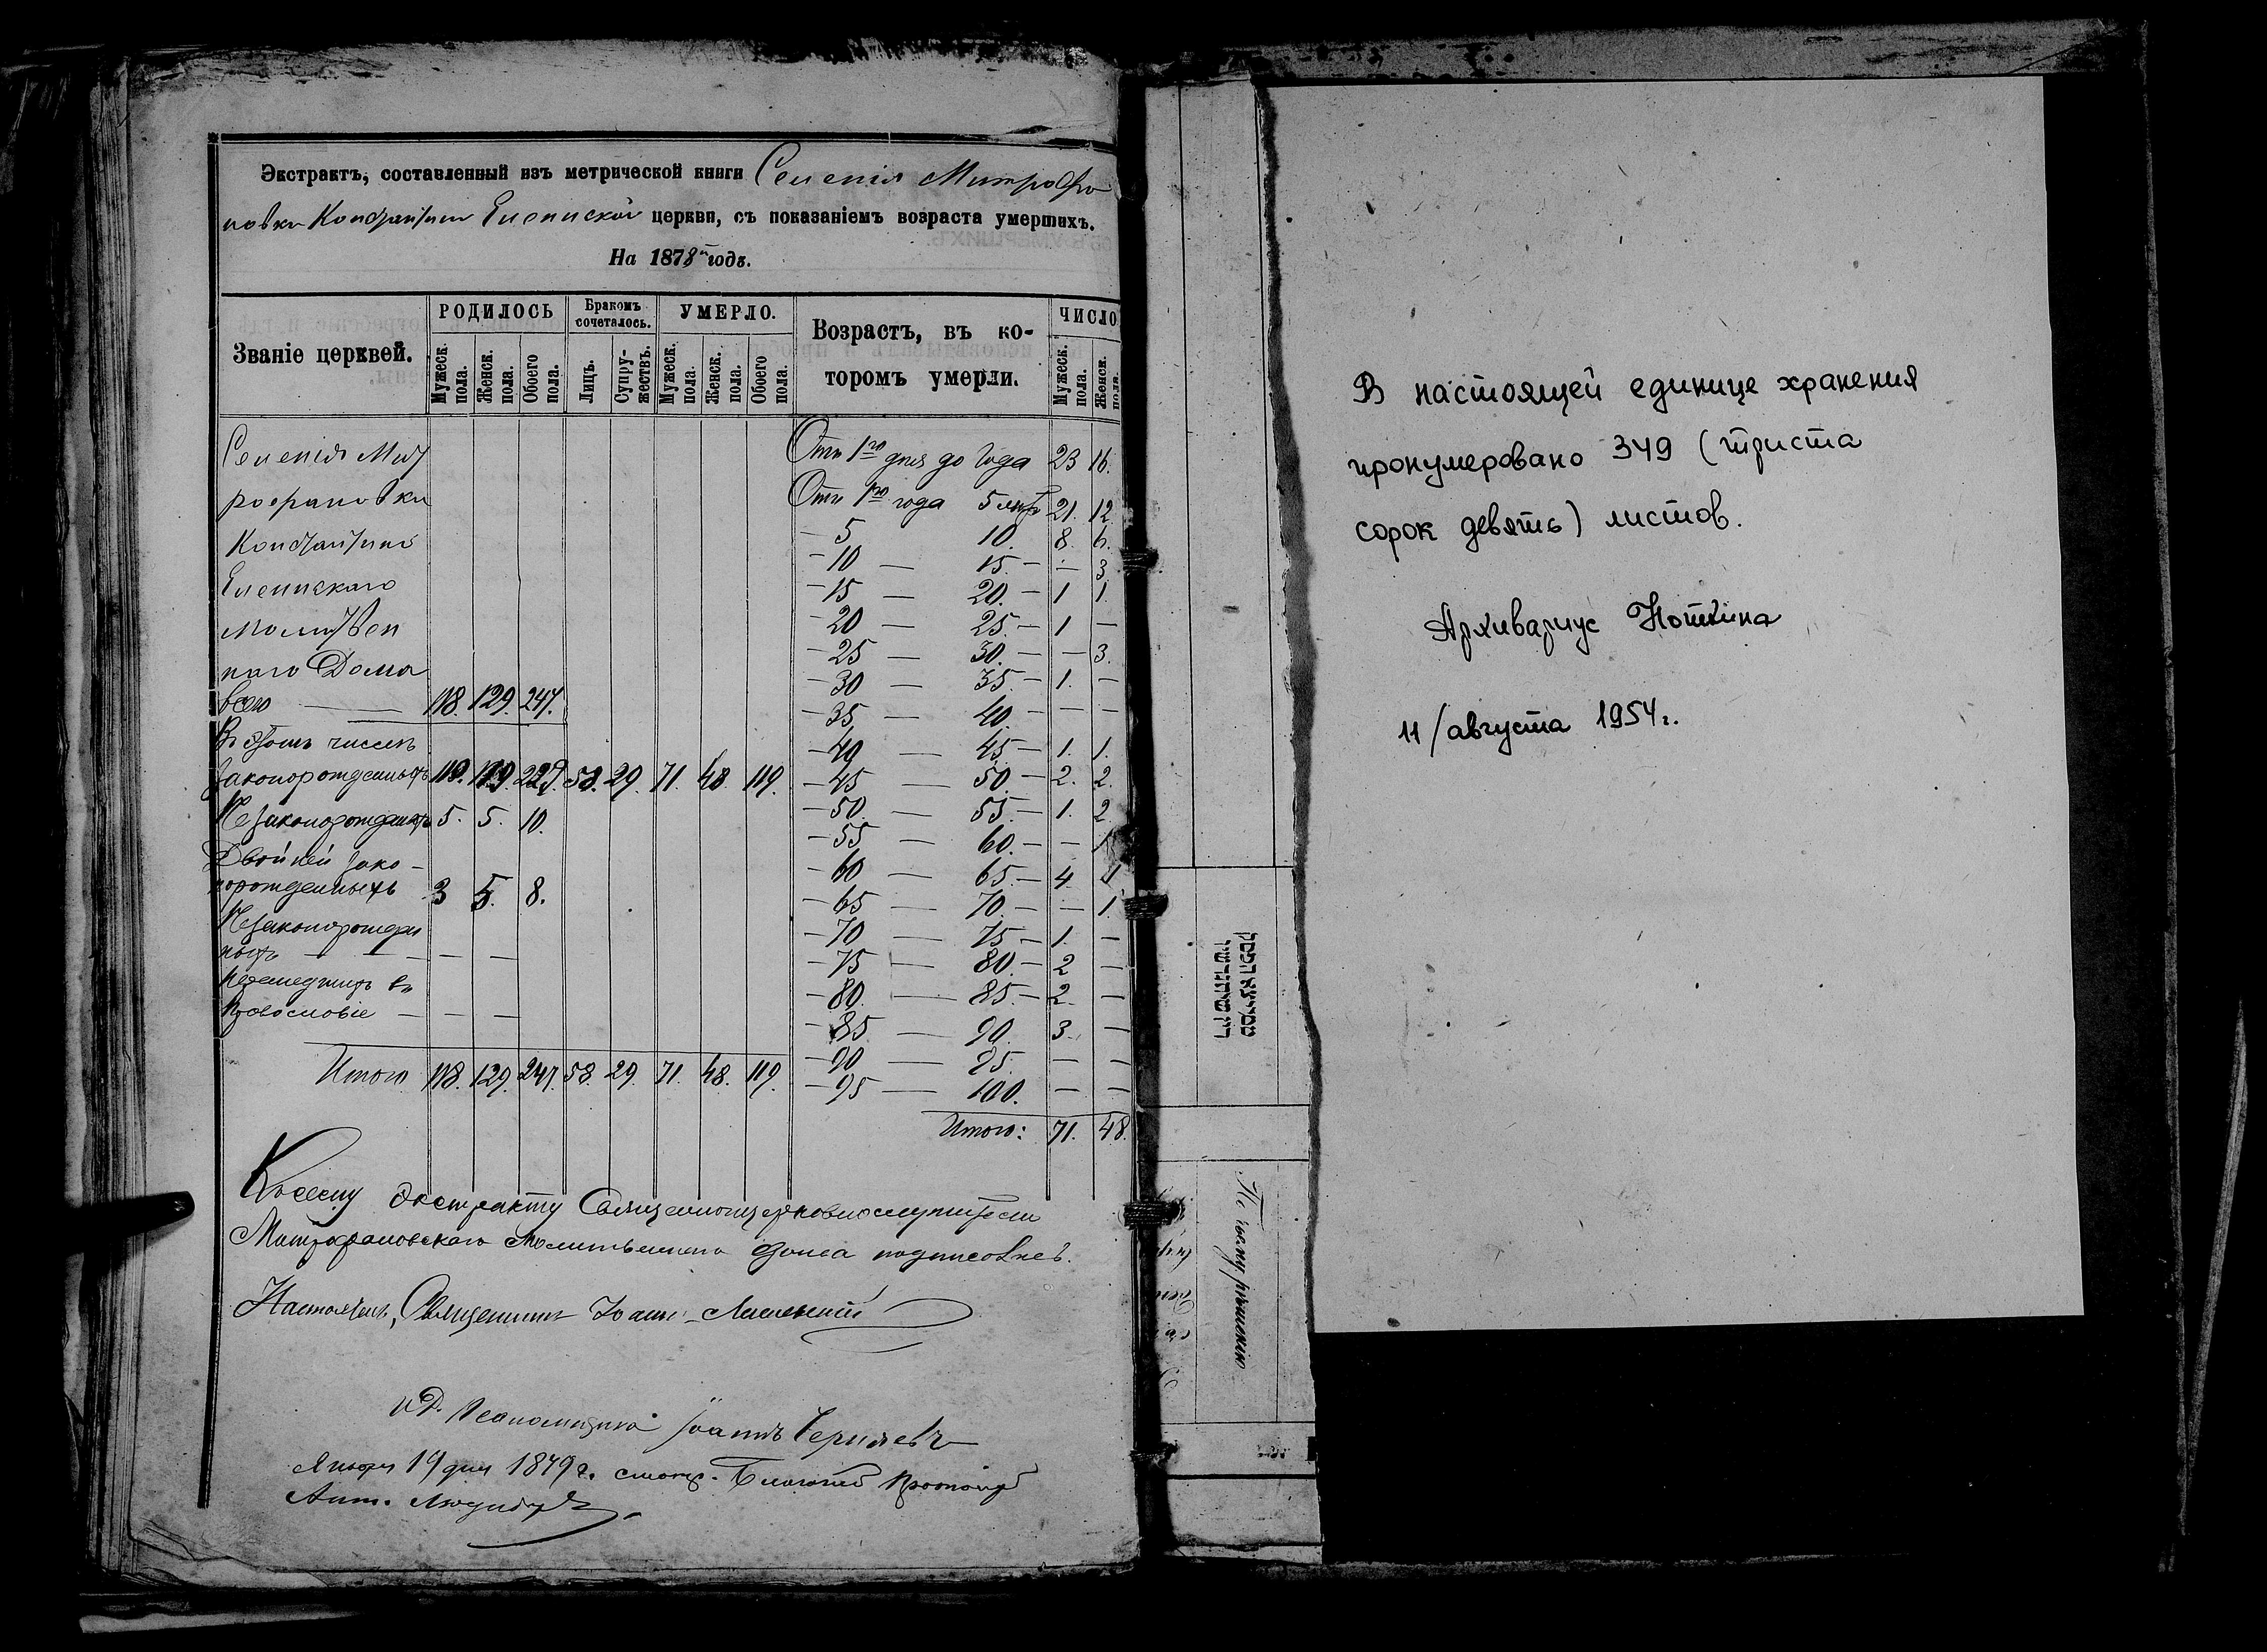 Экстрактъ, составленный изъ метрической книги Селенія Митрофа
новки Константино Еленинской церкви, съ показаніемъ возраста умершихъ.
На 1878 годъ.
Званіе церквей.
РОДИЛОСЬ
Мужеск. пола.
Женск. пола.
Обоего пола.
Бракомъ сочеталось.
Лицъ.
Супружествъ.
УМЕРЛО.
Мужеск. пола.
Женск. пола.
Обоего пола.
Возрастъ, въ ко-
торомъ умерли.
ЧИСЛО
Мужеск. пола.
Женск. пола.
Селенія Мит
рофановки
Константино
Еленинскаго
молитвен
наго Дома
всего — 118. 129. 247.
Въ этомъ числѣ
законорожденныхъ 58. 29. 71. 48. 119.
Незаконорожденныхъ 5. 5. 10.
Двойней зако-
норожденныхъ 3 5. 8.
Незаконорожден
ныхъ — — —
перешедшихъ въ
Православіе — — —
Итого 118. 129. 247. 58. 29. 71. 48. 119.
Отъ 1го дня до года 23 16.
Отъ 1го года 5 лѣтъ 21. 12
— 5 10. 8. 6.
— 10 — 15. — — 3
— 15 — 20. — 1 1.
— 20 — 25. — 1 —
— 25 — 30. — — 3.
— 30 — 35. — 1. —
— 35 — 40. — — —
— 40 — 45. — 1. 1.
— 45 — 50 — 2. 2.
— 50. — 55. — 1. 2
— 55 — 60. — — 1
— 60 — 65. — 4
— 65 — 70. — — 1.
— 70 — 75 — 1. —
— 75 — 80. — 2 —
— 80. — 85. — 2. —
— 85 — 90. 3 —
— 90 — 95. — —
— 95 — 100. — —
Итого: 71. 48.
Къ сему экстракту Священноцерковнослужители
Митрофановскаго Молитвеннаго дома подписались.
Настоятель, Священникъ Іоаннъ
И.Д. Псаломщика Іоаннъ Черняевъ
Января 19 дня 1879 г.
Ант.
По чьему рѣшенію
В настоящей единице хранения
пронумеровано 349 (триста
сорок девять) листов.
Архивариус Ноткина
11/августа 1954 г.